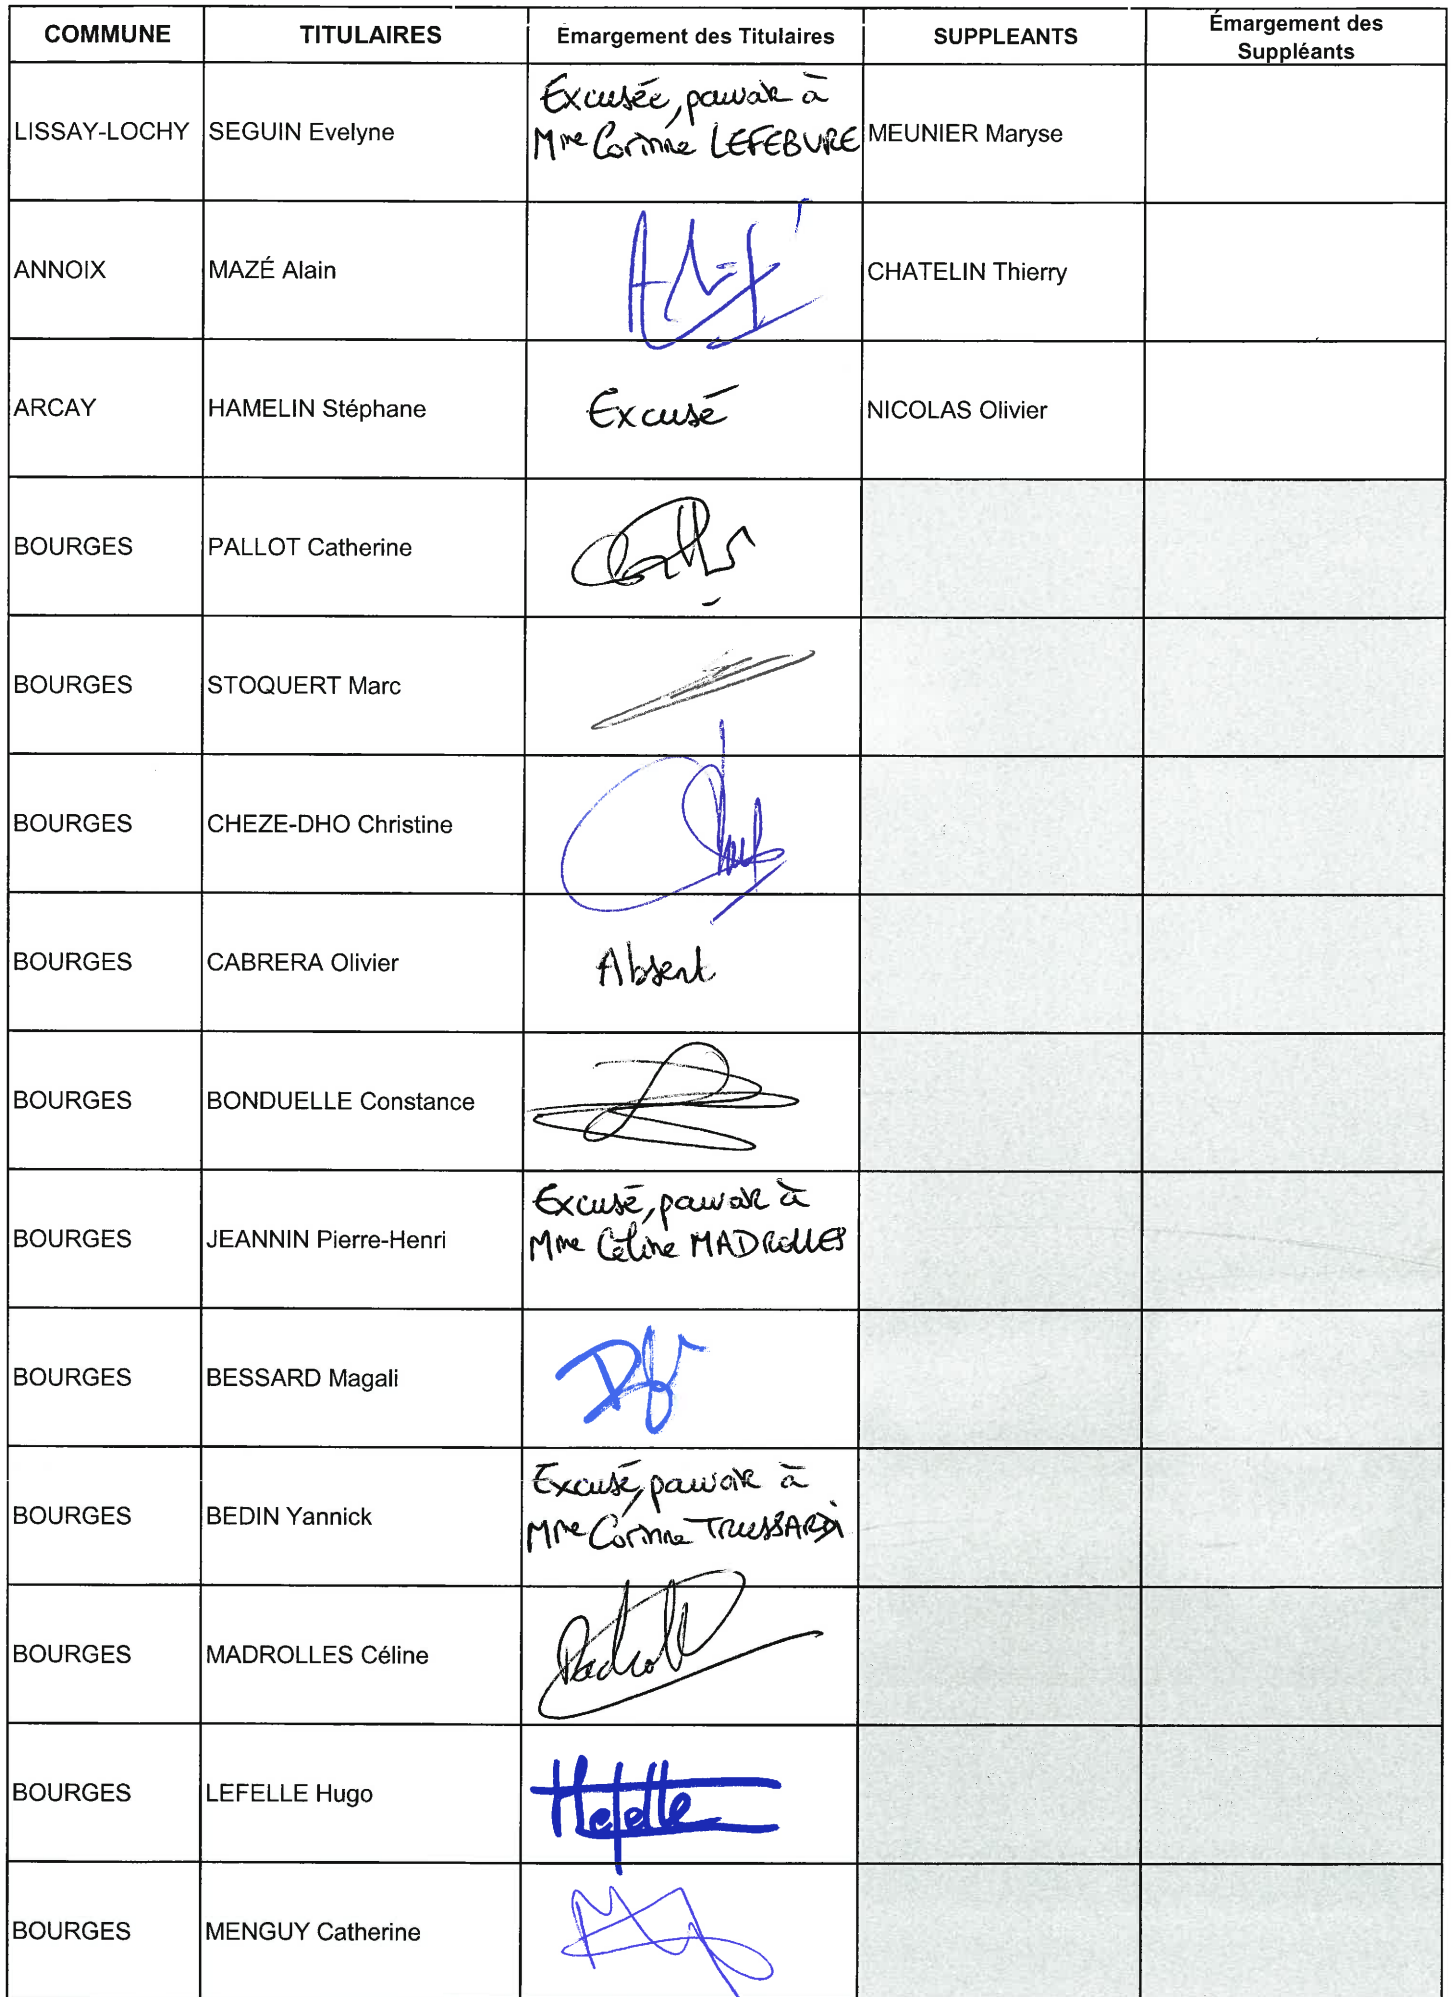 COMMUNE TITULAIRES Émargement des Titulaires SUPPLEANTS Émargement des
Suppléants
Excusée, pouvoir à
LISSAY-LOCHY SEGUIN Evelyne Mme Corinne LEFEBVRE MEUNIER Maryse
ANNOIX MAZÉ Alain CHATELIN Thierry
ARCAY HAMELIN Stéphane Excusé NICOLAS Olivier
BOURGES PALLOT Catherine
BOURGES STOQUERT Marc
BOURGES CHEZE-DHO Christine
BOURGES CABRERA Olivier Absent
BOURGES BONDUELLE Constance
Excusé, pouvoir à
BOURGES JEANNIN Pierre-Henri Mme Céline MADROLLES
BOURGES BESSARD Magali
Excusé, pouvoir à
BOURGES BEDIN Yannick Mme Corinne TRUSSARDI
BOURGES MADROLLES Céline
BOURGES LEFELLE Hugo Hlefelle
BOURGES MENGUY Catherine